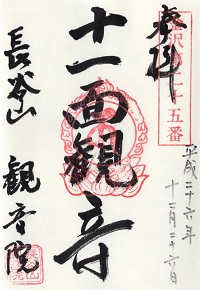 奉拝
金沢第二十五番
平成二十六年
十二月二十六日
十一面観音
長谷山
観音院